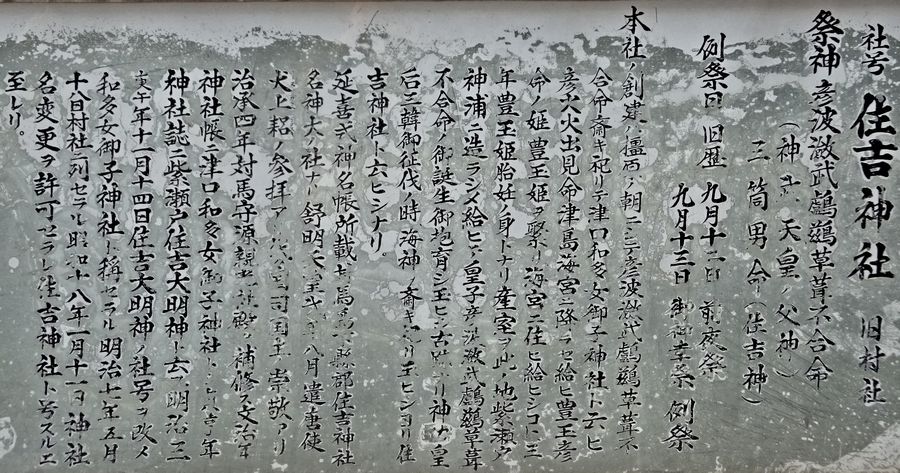 社号 住吉神社 旧村社
祭神 彦波瀲武鸕鶿草葺不合命
(神武天皇ノ父神)
三筒男命(住吉神)
例祭日 旧歴 九月十二日 前夜祭
九月十三日 御神幸祭 例祭
本社ノ創建ハ橿原ノ朝ニシテ彦波瀲武鸕鶿草葺不
合命ヲ斎キ祀リテ津口和多女御子神社ト云ヒ
彦火火出見命津島海宮ニ降ラセ給ヒ豊玉彦
命ノ姫豊玉姫ヲ娶リ海宮ニ住ヒ給ヒシコト三
年豊玉姫胎妊ノ身トナリ産室ヲ此ノ地紫瀬戸
神浦ニ造ラシメ給ヒテ皇子彦波瀲武鸕鶿草葺
不合命ノ御誕生御抱育シ玉ヒシ古跡ナリ神功皇
后三韓御征伐ノ時海神ヲ斎キ祀リ玉ヒシヨリ住
吉神社ト云ヒシナリ。
延喜式神名帳所載対馬島下縣郡住吉神社
名神大ノ社ナリ舒明天皇 八月遣唐使
犬上耜ノ参拝アリ 国司国主ノ崇敬アリ
治承四年対馬守源親光 殿ヲ補修ス文治年
神社帳ニ津口和多女御子神社 年
神社誌ニ紫瀬戸住吉大明神ト云フ明治三
庚午年十一月十四日住吉大明神ノ社号ヲ改メ
和多女御子神社ト稱セラル明治七年五月
十八日村社ニ列セラル昭和十八年一月十一日神社
名変更ヲ許可セラレ住吉神社ト号スルニ
至レリ。